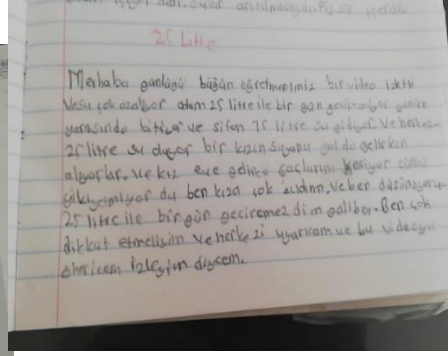 25 Litre
Merhaba günlüğü bügün öğretmenimiz bir video izletti
Vesu çok azalıyor 25 litre ile bir gün günün
yarasında bitiler ve sifon 75 litre su gidiyor. Ve herkese
25 litre su duyor bir kızın suyunu yolda gelirken
alıyorlar. Ve kız eve gelince saçlarını kesiyor çünkü
du ben kıza çok acıdım, ve ben düşünüyorum
25 litre ile bir gün geciremezdim galiba. Ben çok
dikkat etmeliyim ve herkezi uyarıcam ve bu videoyu
izleyim diycem.